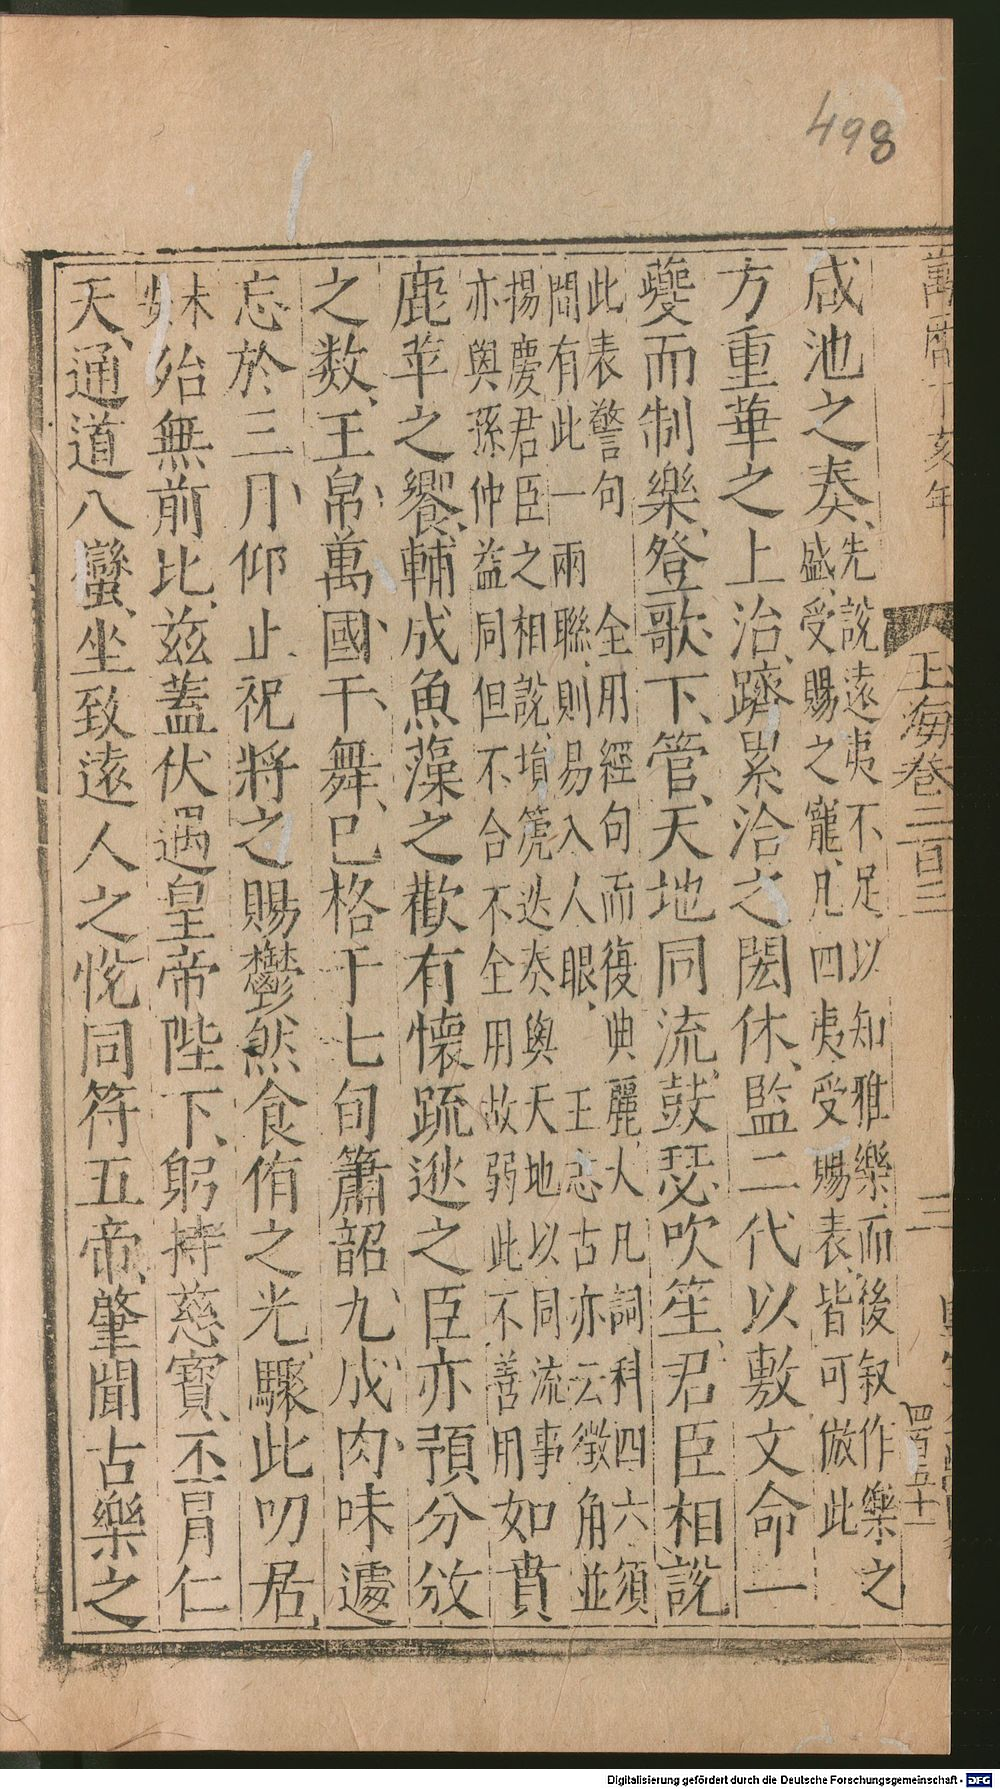 498
萬曆丁亥年
玉海卷二百三
二
四百五十一
咸池之奏先說遠夷不足以知雅樂而後叙作樂之
盛受賜之寵凡四夷受賜表皆可倣此
方重華之上治躋累洽之閎休監二代以敷文命一
夔而制樂登歌下管天地同流鼓瑟吹笙君臣相說
此表警句 全用經句而復典麗大凡詞科四六須
間有此一兩聯則易入人眼 王志古亦云徵角並
揚慶君臣之相說塤箎迭奏與天地以同流事
亦與孫仲益同但不合不全用故弱此不善用如賁
鹿苹之饗輔成魚藻之歡有懷疏逖之臣亦預分攽
之数玉帛萬國干舞已格于七旬簫韶九成肉味遽
忘於三月仰止祝將之賜鬱然食侑之光驟此叨居
妹未
殆無前比茲蓋伏遇皇帝陛下躬持慈寶丕冐仁
天通道八蠻坐致遠人之恱同符五帝肇聞古樂之
Digitalisierung gefördert durch die Deutsche Forschungsgemeinschaft - DFG